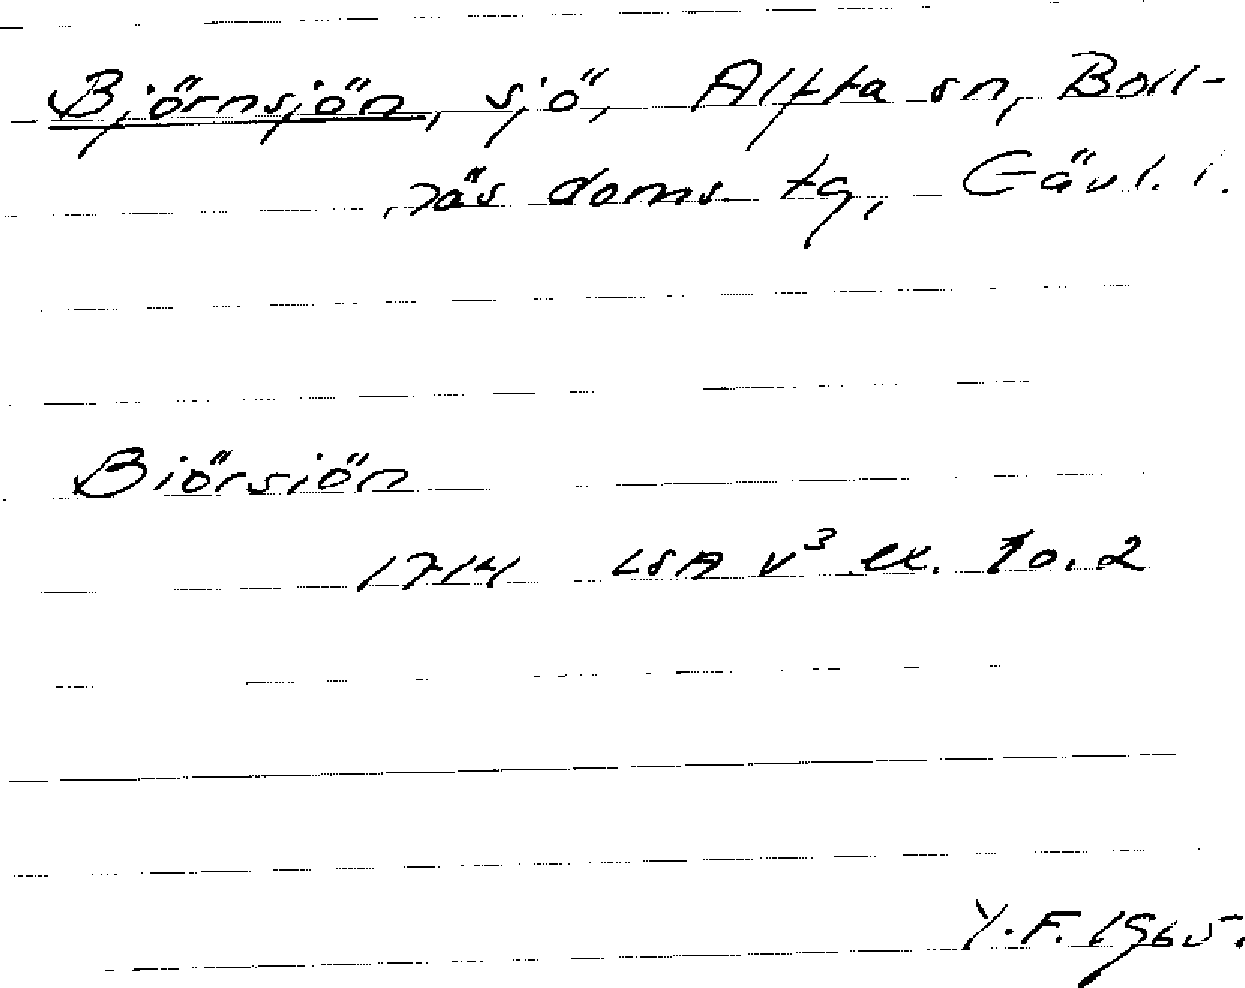 Björnsjön, sjö, Alfta sn, Boll-
näs doms. tg, Gävl. l.
Biörsiön
1714 LSA v³ ex. 10.2
Y.F. 1965.